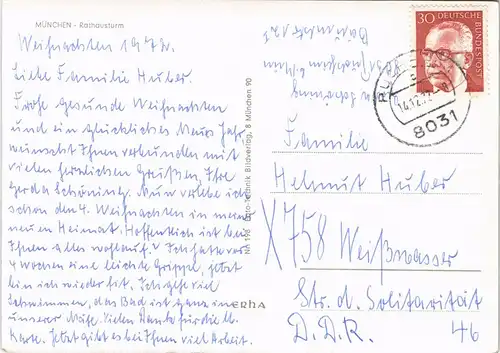 MÜNCHEN - Rathausturm
Weihnachten 1972.
Liebe Familie Huber.
Frohe gesunde Weihnachten
und ein glückliches Neues Jahr
wünscht Ihnen verbunden mit
vielen herzlichen Grüßen, Ihre
Gerda Schöning. Nun verlebe ich
schon den 4. Weihnachten in meiner
neuen Heimat. Hoffentlich ist bei
Ihnen alles wohlauf? Ich hatte vor
4 Wochen eine leichte Grippe, jetzt
bin ich wieder fit. Ich gehe viel
Schwimmen, das Bad ist ganz in
unserer Nähe. Vielen Dank für die
Karte. Jetzt gibt es bei Ihnen viel Arbeit.
Nr. 196 Foto-Technik Bildverlag, 8 München 90
ERHA
30 DEUTSCHE BUNDESPOST
14.12.72
8031
Schöning
Familie
Helmut Huber
X 758 Weißwasser
Str. d. Solidarität
D.D.R. 46